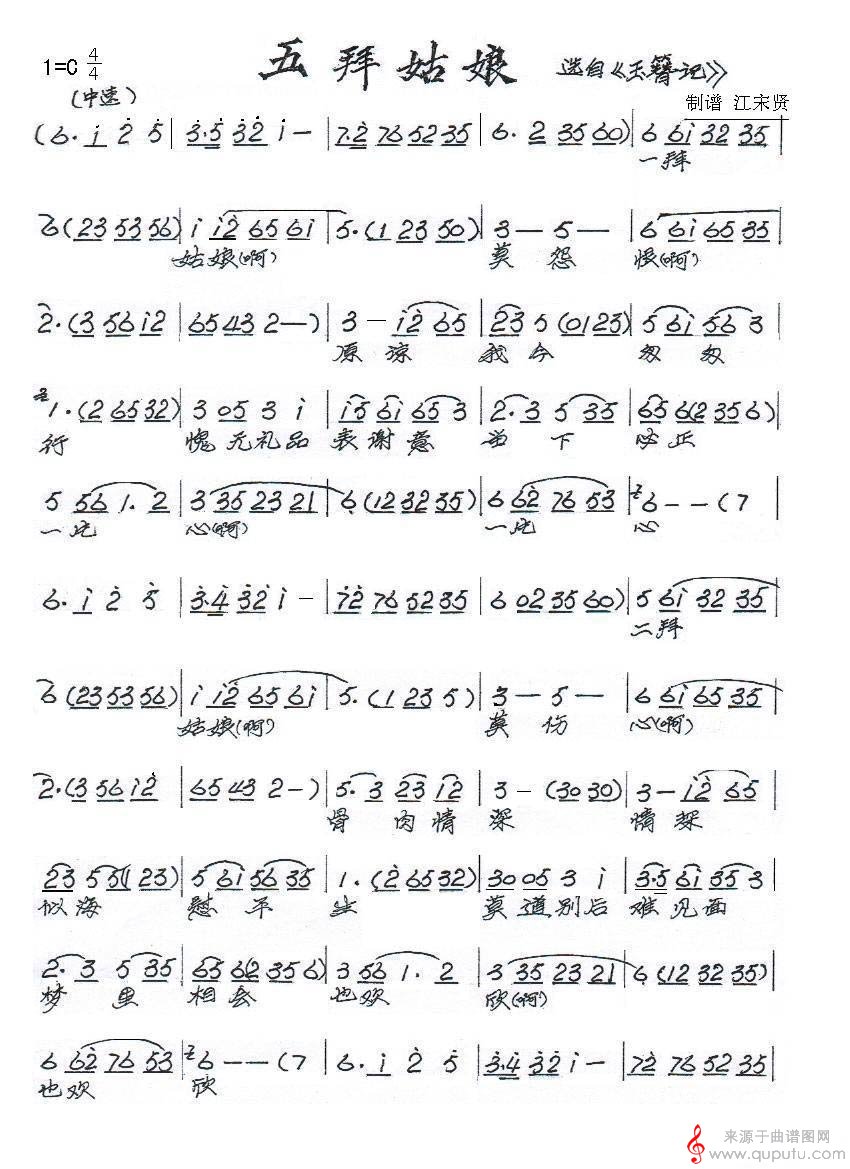 五拜姑娘 选自《玉簪记》
1=C 4/4
(中速)
制谱 江宋贤
(6. i 2 5 | 3·5 32 i — | 7·2 76 52 35 | 6. 2 35 60) | 6 6i 32 35 |
一拜
6 (23 53 56) | i i2 65 6i | 5. (1 23 50) | 3 — 5 — | 6 6i 65 35 |
姑娘(啊) 莫怨恨(啊)
2. (3 56 i2 | 65 43 2 —) | 3 — i2 65 | 23 5 (01 23) | 5 6i 56 3 |
原谅我今匆匆
1. (2 65 32) | 3 05 3 i | i5 6i 65 3 | 2. 3 5 35 | 65 6(2 35 6) |
行 愧无礼品表谢意 当下必正
5 56 1. 2 | 3 35 23 21 | 6 (12 32 35) | 6 62 76 53 | 6 — — (7
一片心(啊) 一片心
6. i 2 5 | 3·4 32 i — | 72 76 52 35 | 6 02 35 60) | 5 6i 32 35 |
二拜
6 (23 53 56) | i i2 65 6i | 5. (1 23 5) | 3 — 5 — | 6 6i 65 35 |
姑娘(啊) 莫伤心(啊)
2. (3 56 i2 | 65 43 2 —) | 5. 3 23 i2 | 3 — (30 30) | 3 — i2 65 |
骨肉情深 情深
23 5 5(1 23) | 5 6i 56 35 | 1. (2 65 32) | 30 05 3 i | 3·5 6i 35 3 |
似海慰平生 莫道别后难见面
2. 3 5 35 | 65 6(2 35 6) | 3 56 1. 2 | 3 35 23 21 | 6 (12 32 35) |
梦里相会也欢欣(啊)
6 62 76 53 | 6 — — (7 | 6. i 2 5 | 3·4 32 i — | 72 76 52 35 |
也欢欣
来源于曲谱图网
www.quputu.com